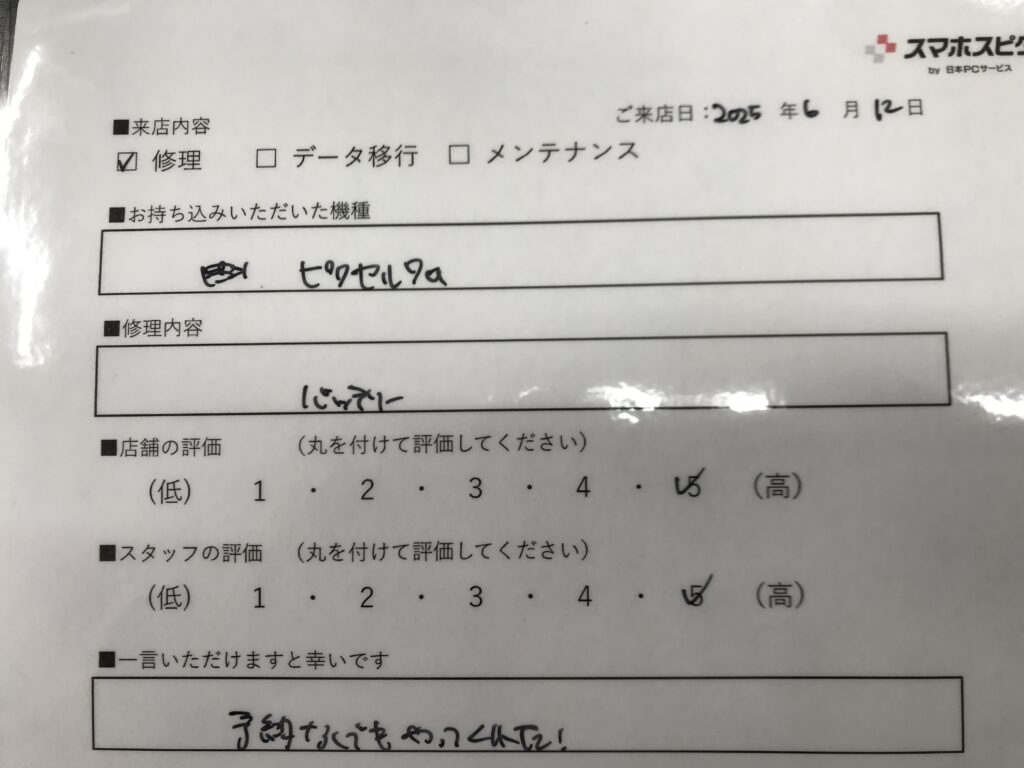 スマホスピタ
by 日本PCサービス
ご来店日：2025 年 6 月 12 日
■来店内容
☑ 修理 ☐ データ移行 ☐ メンテナンス
■お持ち込みいただいた機種
ピクセル7a
■修理内容
バッテリー
■店舗の評価 （丸を付けて評価してください）
（低） 1 ・ 2 ・ 3 ・ 4 ・ 5 （高）
■スタッフの評価 （丸を付けて評価してください）
（低） 1 ・ 2 ・ 3 ・ 4 ・ 5 （高）
■一言いただけますと幸いです
予約なくてもやってくれた!